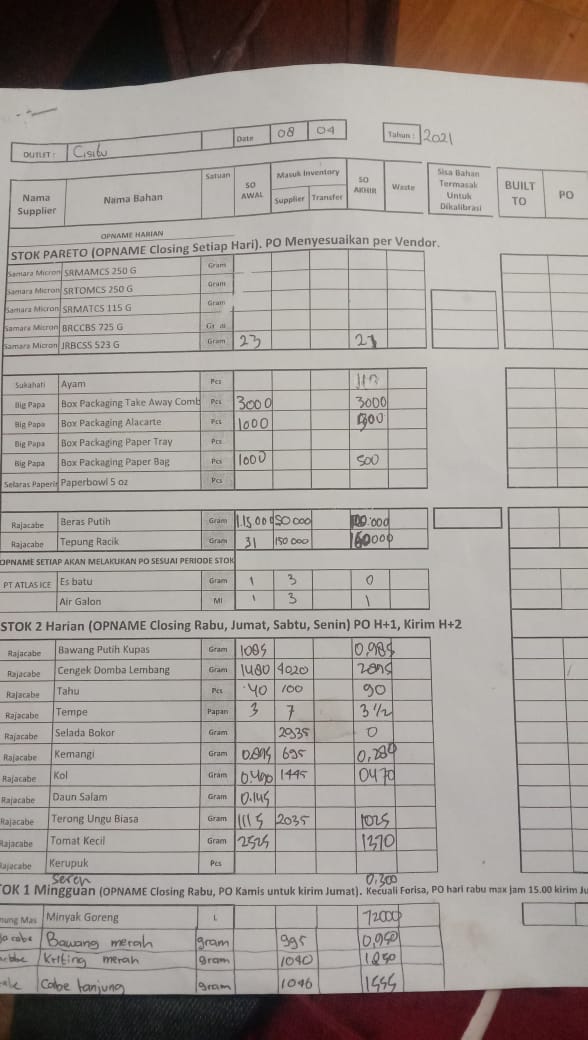 OUTLET : Cisitu Date 08 04 Tahun : 2021
Nama Supplier Nama Bahan Satuan SO AWAL Masuk Inventory Supplier Transfer SO AKHIR Waste Sisa Bahan Termasak Untuk Dikalibrasi BUILT TO PO
OPNAME HARIAN
STOK PARETO (OPNAME Closing Setiap Hari). PO Menyesuaikan per Vendor.
Samara Micron SRMAMCS 250 G Gram
Samara Micron SRTOMCS 250 G Gram
Samara Micron SRMATCS 115 G Gram
Samara Micron BRCCBS 725 G
Samara Micron JRBCSS 523 G Gram 23
Sukahati Ayam Pcs
Big Papa Box Packaging Take Away Comb Pcs 3000 3000
Big Papa Box Packaging Alacarte Pcs 1000
Big Papa Box Packaging Paper Tray Pcs
Big Papa Box Packaging Paper Bag Pcs 1000 500
Selaras Paperi Paperbowl 5 oz Pcs
Rajacabe Beras Putih Gram 115.000 50 000
Rajacabe Tepung Racik Gram 31 150 000
OPNAME SETIAP AKAN MELAKUKAN PO SESUAI PERIODE STOK
PT ATLAS ICE Es batu Gram 1 3 0
Air Galon Ml 1 3 1
STOK 2 Harian (OPNAME Closing Rabu, Jumat, Sabtu, Senin) PO H+1, Kirim H+2
Rajacabe Bawang Putih Kupas Gram 1085 0,985
Rajacabe Cengek Domba Lembang Gram 1480 4020
Rajacabe Tahu Pcs 40 100 90
Rajacabe Tempe Papan 3 7 3 1/2
Rajacabe Selada Bokor Gram 2935 0
Rajacabe Kemangi Gram 695
Rajacabe Kol Gram 1445 0470
Rajacabe Daun Salam Gram 0.145
Rajacabe Terong Ungu Biasa Gram 1115 2035 1025
Rajacabe Tomat Kecil Gram 2525 1370
Rajacabe Kerupuk Pcs
Sereh 0,300
TOK 1 Mingguan (OPNAME Closing Rabu, PO Kamis untuk kirim Jumat). Kecuali Forisa, PO hari rabu max jam 15.00 kirim Ju
nung Mas Minyak Goreng L 72000
Bawang merah gram 995 0,950
Kriting merah gram 1040 1250
Cabe tanjung gram 1046 1555